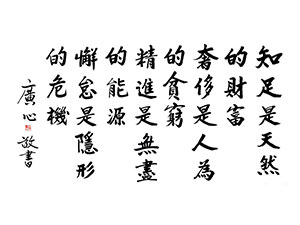 知足是天然
的財富
奢侈是人為
的貪窮
精進是無盡
的能源
懈怠是隱形
的危機
廣心敬書